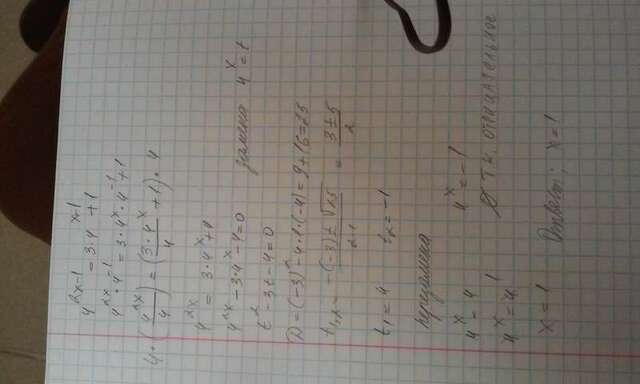 4^{2x-1} = 3·4^{x-1} + 1
4^{2x}·4^{-1} = 3·4^x·4^{-1} + 1
4·(4^{2x}/4) = (3·4^x/4 + 1)·4
4^{2x} = 3·4^x + 4
4^{2x} - 3·4^x - 4 = 0 замена 4^x = t
t^2 - 3t - 4 = 0
D = (-3)^2 - 4·1·(-4) = 9 + 16 = 25
t_{1,2} = (-(-3) ± √25)/(2·1) = (3 ± 5)/2
t_1 = 4 t_2 = -1
4^x = 4 4^x = -1
4^x = 4^1 ∅ т.к. отрицательное
x = 1 Ответ: x = 1